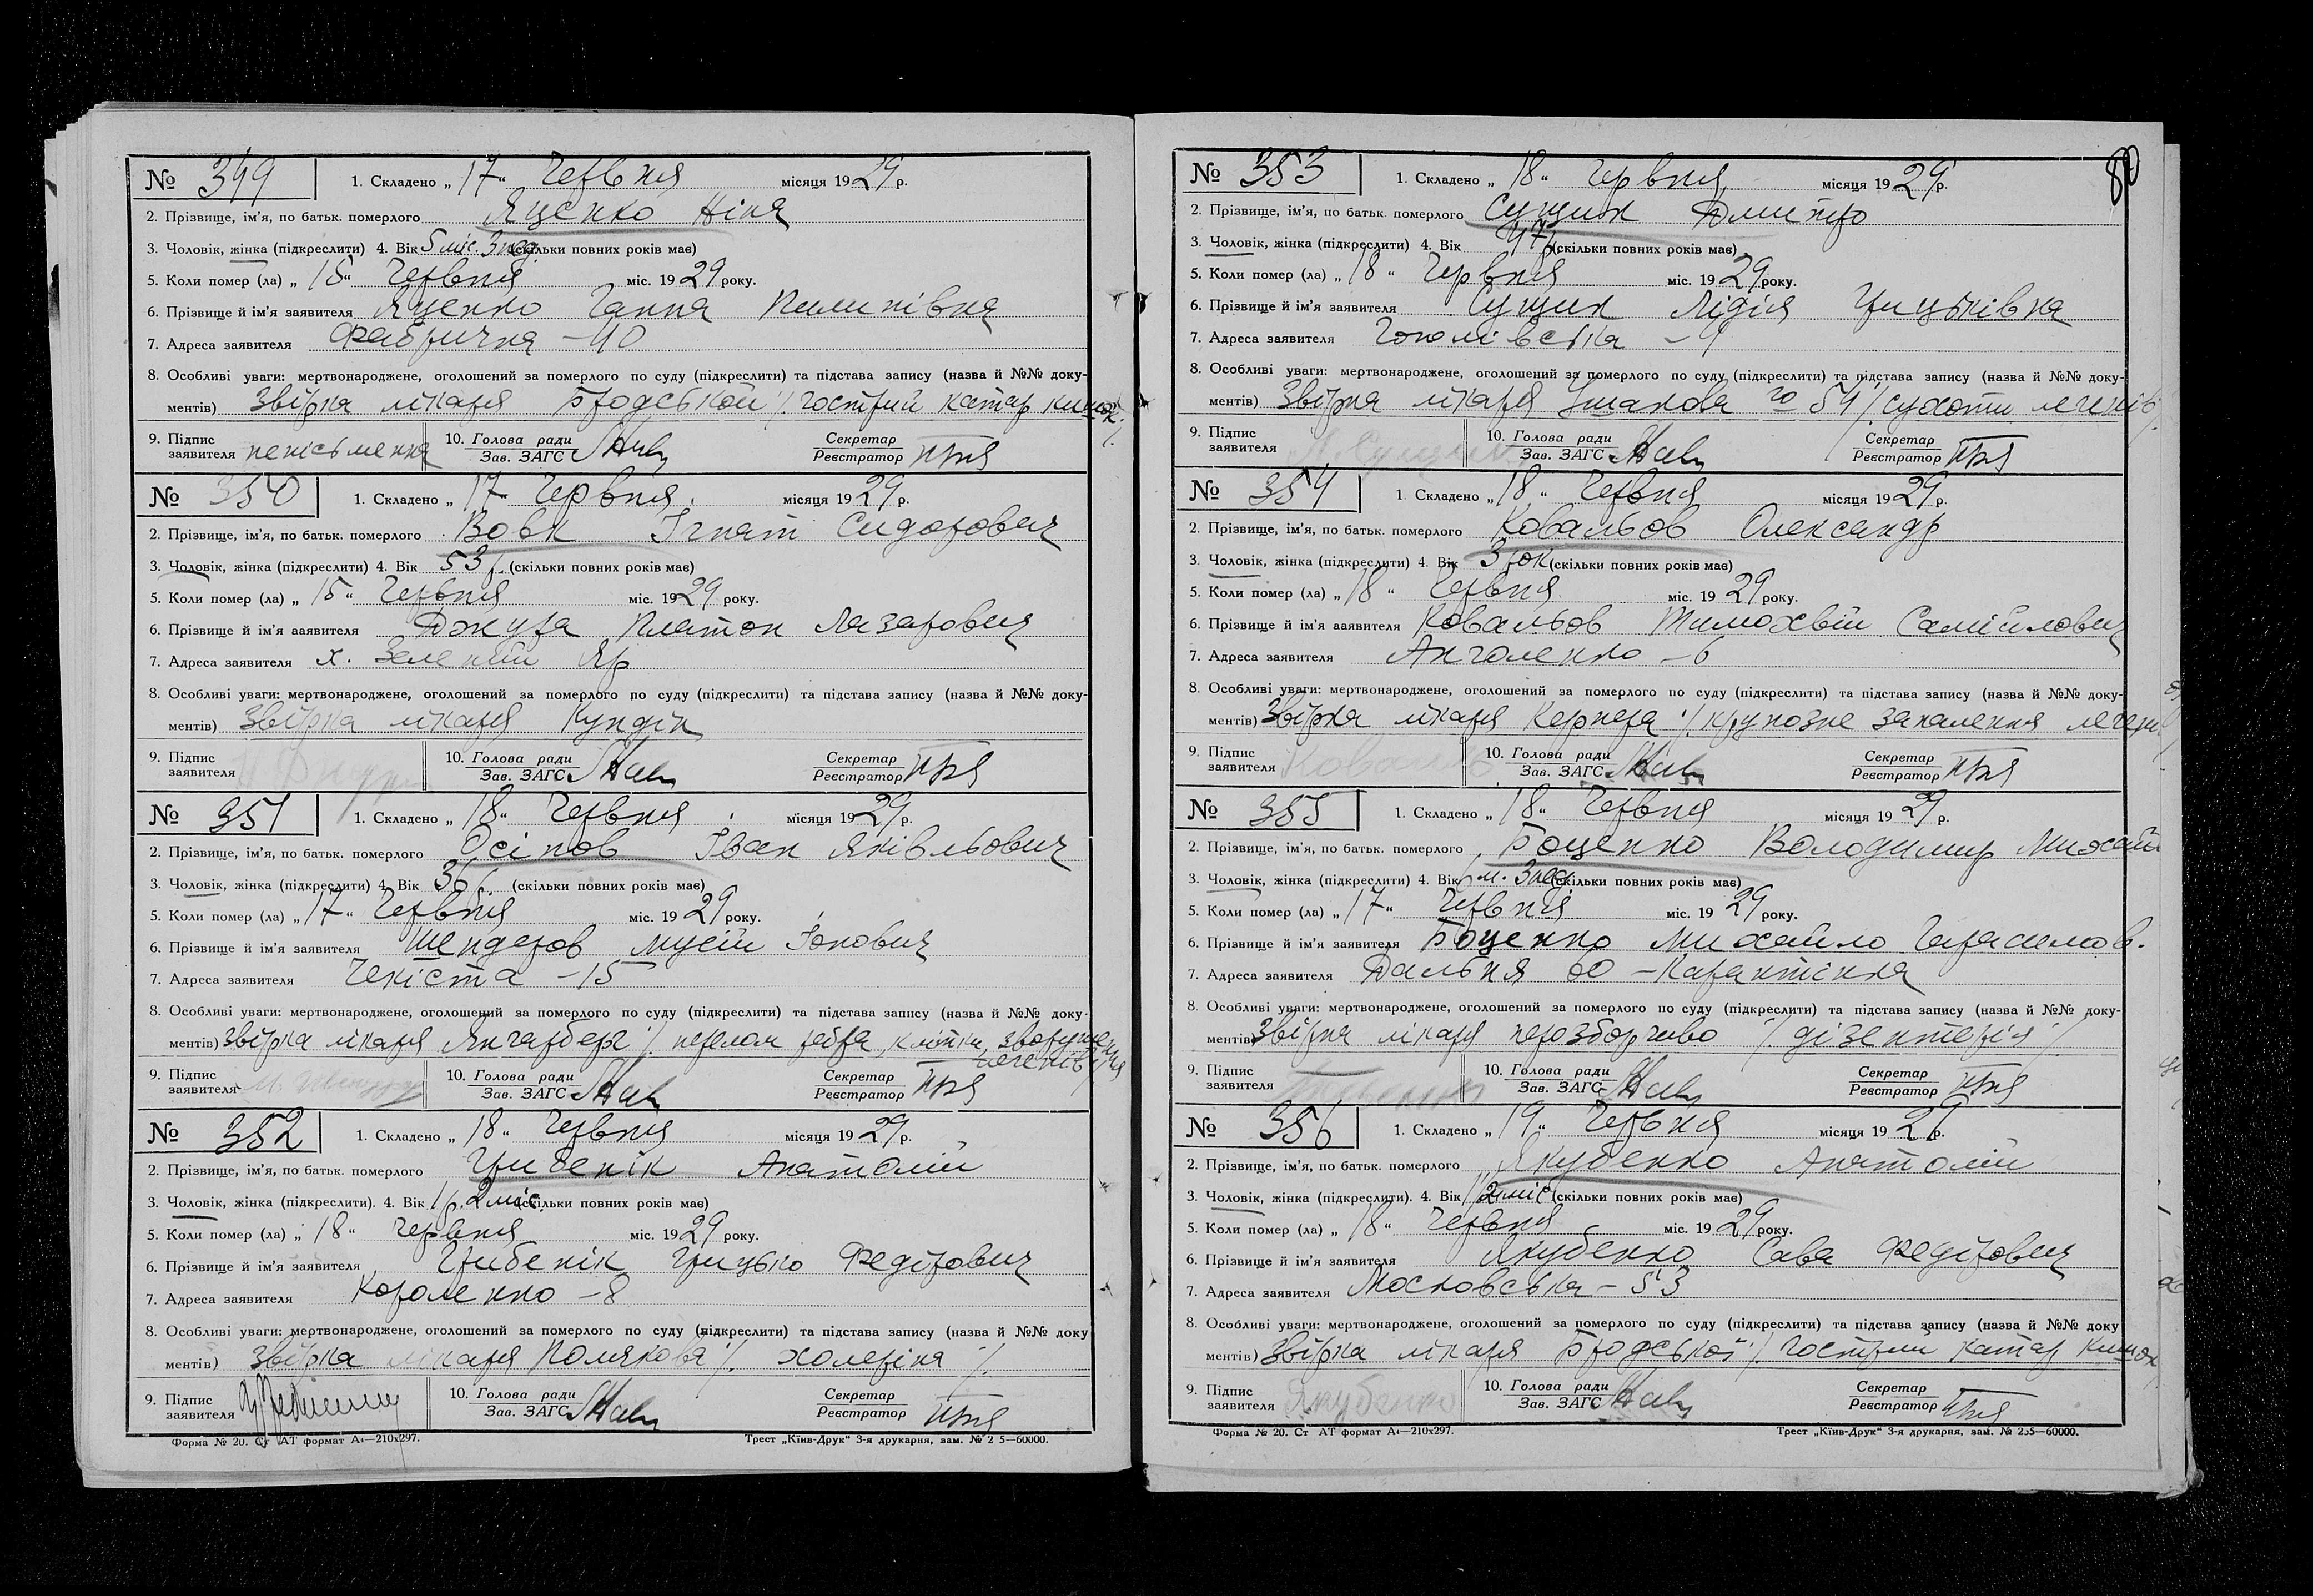 № 349 1. Складено „17“ Червня місяця 1929 р.
2. Прізвище, ім'я, по батьк. померлого Яценко Ніна
3. Чоловік, жінка (підкреслити) 4. Вік 5 міс. 3 нед. (скільки повних років має)
5. Коли помер (ла) „15“ Червня міс. 1929 року.
6. Прізвище й ім'я заявителя Яценко Ганна Пилипівна
7. Адреса заявителя Фабрична – 40
8. Особливі уваги: мертвонароджене, оголошений за померлого по суду (підкреслити) та підстава запису (назва й №№ доку-
ментів) Звірка лікаря Бродської /. гострий катар кишок. /.
9. Підпис заявителя неписьменна 10. Голова ради Зав. ЗАГС Секретар Реєстратор
№ 350 1. Складено „17“ Червня місяця 1929 р.
2. Прізвище, ім'я, по батьк. померлого Вовк Ігнат Сидорович
3. Чоловік, жінка (підкреслити) 4. Вік 53 р. (скільки повних років має)
5. Коли помер (ла) „15“ Червня міс. 1929 року.
6. Прізвище й ім'я заявителя Джура Платон Лазарович
7. Адреса заявителя х. Зелений Яр
8. Особливі уваги: мертвонароджене, оголошений за померлого по суду (підкреслити) та підстава запису (назва й №№ доку-
ментів) Звірка лікаря Кундін
9. Підпис заявителя 10. Голова ради Зав. ЗАГС Секретар Реєстратор
№ 351 1. Складено „18“ Червня місяця 1929 р.
2. Прізвище, ім'я, по батьк. померлого Осіпов Іван Яківльович
3. Чоловік, жінка (підкреслити) 4. Вік 36 р. (скільки повних років має)
5. Коли помер (ла) „17“ Червня міс. 1929 року.
6. Прізвище й ім'я заявителя Шендеров Мусій Іонович
7. Адреса заявителя Чекіста – 15
8. Особливі уваги: мертвонароджене, оголошений за померлого по суду (підкреслити) та підстава запису (назва й №№ доку-
ментів) Звірка лікаря /. перелом ребра, клітки, легенів
9. Підпис заявителя 10. Голова ради Зав. ЗАГС Секретар Реєстратор
№ 352 1. Складено „18“ Червня місяця 1929 р.
2. Прізвище, ім'я, по батьк. померлого Грибенік Анатолій
3. Чоловік, жінка (підкреслити). 4. Вік 1 р. 2 міс. (скільки повних років має)
5. Коли помер (ла) „18“ Червня міс. 1929 року.
6. Прізвище й ім'я заявителя Грибенік Грицько Федорович
7. Адреса заявителя Короленко – 8
8. Особливі уваги: мертвонароджене, оголошений за померлого по суду (підкреслити) та підстава запису (назва й №№ доку
ментів) Звірка лікаря Полякова /. холеріна /.
9. Підпис заявителя 10. Голова ради Зав. ЗАГС Секретар Реєстратор
Форма № 20. Ст АТ формат А4—210х297. Трест „Київ-Друк“ 3-я друкарня, зам. № 2 5—60000.
80
№ 353 1. Складено „18“ Червня місяця 1929 р.
2. Прізвище, ім'я, по батьк. померлого Сущик Дмитро
3. Чоловік, жінка (підкреслити) 4. Вік 47 р. (скільки повних років має)
5. Коли помер (ла) „18“ Червня міс. 1929 року.
6. Прізвище й ім'я заявителя Сущик Лідія Грицьківна
7. Адреса заявителя Гоголівська – 9
8. Особливі уваги: мертвонароджене, оголошений за померлого по суду (підкреслити) та підстава запису (назва й №№ доку-
ментів) Звірка лікаря Ушакова 54 /. сухоти легенів /.
9. Підпис заявителя Л. Сущик 10. Голова ради Зав. ЗАГС Секретар Реєстратор
№ 354 1. Складено „18“ Червня місяця 1929 р.
2. Прізвище, ім'я, по батьк. померлого Ковальов Олександр
3. Чоловік, жінка (підкреслити) 4. Вік 3 рок (скільки повних років має)
5. Коли помер (ла) „18“ Червня міс. 1929 року.
6. Прізвище й ім'я заявителя Ковальов Тимохвій Самійлович
7. Адреса заявителя Анголенко – 6
8. Особливі уваги: мертвонароджене, оголошений за померлого по суду (підкреслити) та підстава запису (назва й №№ доку-
ментів) Звірка лікаря Кернера /. крупозне запалення легенів
9. Підпис заявителя Коваль 10. Голова ради Зав. ЗАГС Секретар Реєстратор
№ 355 1. Складено „18“ Червня місяця 1929 р.
2. Прізвище, ім'я, по батьк. померлого Боценко Володимир Михайл
3. Чоловік, жінка (підкреслити) 4. Вік м. 3 нед. (скільки повних років має)
5. Коли помер (ла) „17“ Червня міс. 1929 року.
6. Прізвище й ім'я заявителя Боценко Михайло Герасимов.
7. Адреса заявителя Дальня 60 – Карантінна
8. Особливі уваги: мертвонароджене, оголошений за померлого по суду (підкреслити) та підстава запису (назва й №№ доку-
ментів) Звірка лікаря нерозборчиво /. дізентерія /.
9. Підпис заявителя 10. Голова ради Зав. ЗАГС Секретар Реєстратор
№ 356 1. Складено „19“ Червня місяця 1929 р.
2. Прізвище, ім'я, по батьк. померлого Якубенко Анатолій
3. Чоловік, жінка (підкреслити). 4. Вік 2 міс (скільки повних років має)
5. Коли помер (ла) „18“ Червня міс. 1929 року.
6. Прізвище й ім'я заявителя Якубенко Сава Федорович
7. Адреса заявителя Московська – 53
8. Особливі уваги: мертвонароджене, оголошений за померлого по суду (підкреслити) та підстава запису (назва й №№ доку
ментів) Звірка лікаря Бродської /. Гострий катар кишок
9. Підпис заявителя Якубенко 10. Голова ради Зав. ЗАГС Секретар Реєстратор
Форма № 20. Ст АТ формат А4—210х297. Трест „Київ-Друк“ 3-я друкарня, зам. № 255—60000.